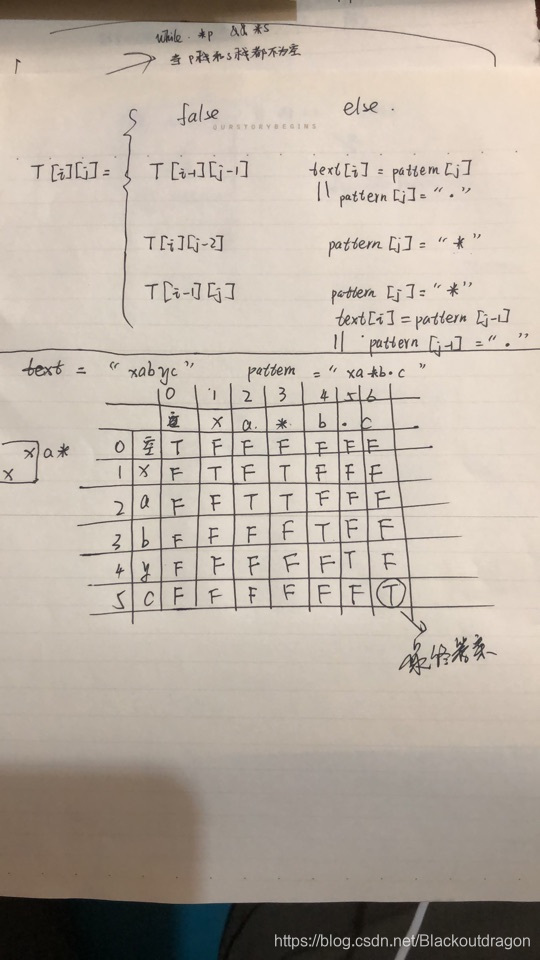 while *p && *s
当 p 栈和 s 栈都不为空
false else.
OURSTORYBEGINS
T[i][j] = T[i-1][j-1] text[i] = pattern[j]
|| pattern[j] = "."
T[i][j-2] pattern[j] = "*"
T[i-1][j] pattern[j] = "*"
text[i] = pattern[j-1]
|| pattern[j-1] = "."
text = "xabyc" pattern = "xa*b.c"
0 1 2 3 4 5 6
空 x a * b . c
0 空 T F F F F F F
x a* 1 x F T F T F F F
x 2 a F F T T F F F
3 b F F F F T F F
4 y F F F F F T F
5 c F F F F F F T
最终答案
https://blog.csdn.net/Blackoutdragon